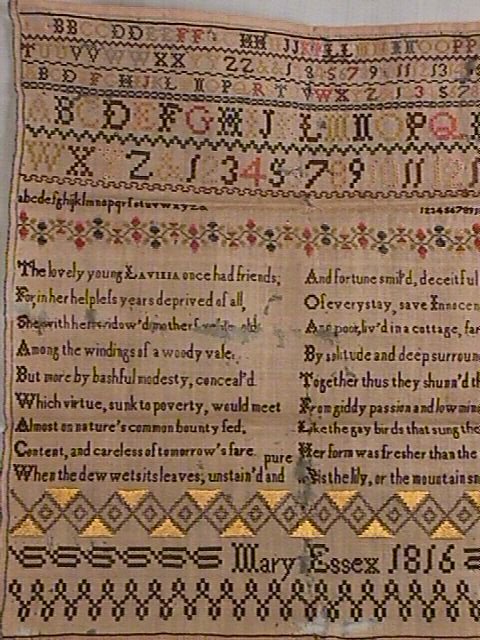 BB CC DD EE FF HH JJ KK LL MM NN OO PP
T UU VV WW XX YY ZZ & 1 3 5 6 7 9 11 13
A B D F G H J K L N O P Q R T V W X Z 1 3 5 7
A B C D E F G H J L M N O P Q
W X Z & 1 2 3 4 5 7 8 9 11
abcdefghijklmnopqrsstuvwxyz
The lovely young LAVINIA once had friends;
For, in her helpless years deprived of all,
She with her widow'd mother feeble old
Among the windings of a woody vale;
But more by bashful modesty, conceal'd
Which virtue, sunk to poverty, would meet
Almost on nature's common bounty fed;
Content, and careless of tomorrow's fare.
When the dew wets its leaves; unstain'd and pure
And fortune smil'd, deceitful
Of every stay, save Innocen
And poor, liv'd in a cottage, far
By solitude and deep surroun
Together thus they shunn'd th
From giddy passion and low min
Like the gay birds that sung the
Her form was fresher than the
As is the lily, or the mountain sn
Mary Essex 1816